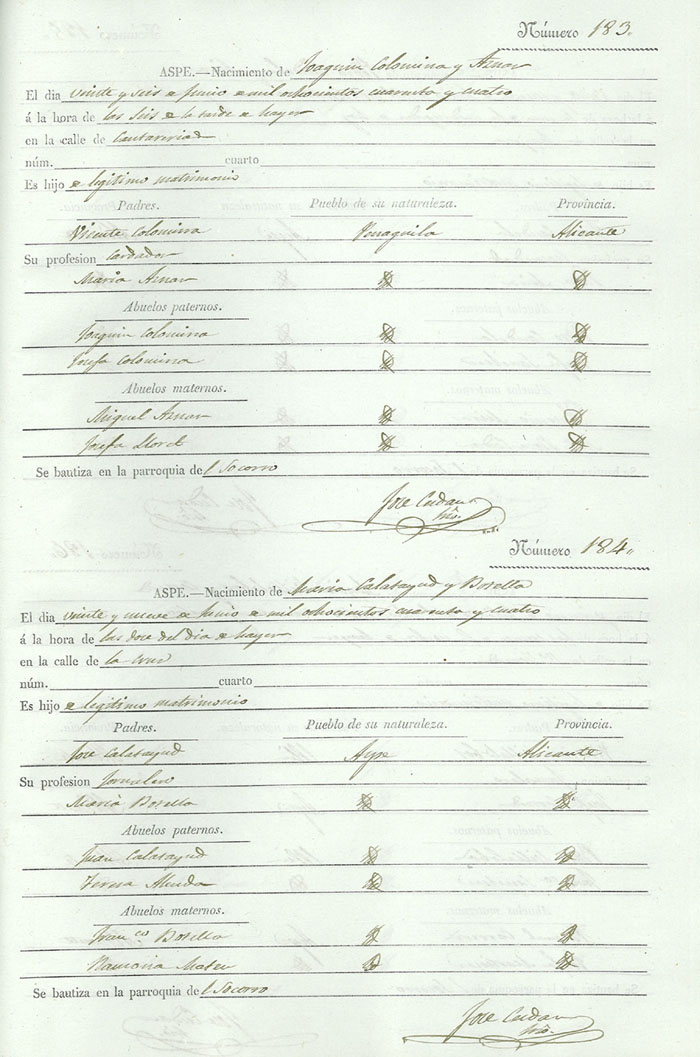 Número 183.
ASPE.—Nacimiento de Joaquin Colomina y Aznar
El dia veinte y seis de Junio de mil ochocientos cuarenta y cuatro
á la hora de las seis de la tarde de hayer
en la calle de Cantareria
núm. cuarto
Es hijo de legitimo matrimonio
Padres. Pueblo de su naturaleza. Provincia.
Vicente Colomina Penaguila Alicante
Su profesion Cardador
Maria Aznar
Abuelos paternos.
Joaquin Colomina
Josefa Colomina
Abuelos maternos.
Miguel Aznar
Josefa Lloret
Se bautiza en la parroquia del Socorro
Jose
Número 184.
ASPE.—Nacimiento de Maria Calatayud y Botella
El dia veinte y nueve de Junio de mil ochocientos cuarenta y cuatro
á la hora de las doce del dia de hayer
en la calle de la Cruz
núm. cuarto
Es hijo de legitimo matrimonio
Padres. Pueblo de su naturaleza. Provincia.
Jose Calatayud Aspe Alicante
Su profesion Jornalero
Maria Botella
Abuelos paternos.
Juan Calatayud
Teresa
Abuelos maternos.
Fran.co Botella
Ramona Mateu
Se bautiza en la parroquia del Socorro
Jose